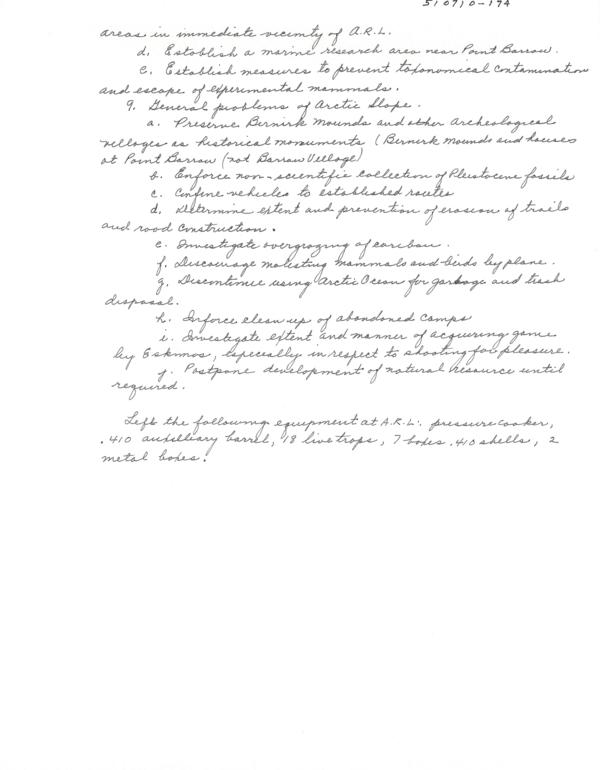 510710-174
areas in immediate vicinity of A.R.L.
d. Establish a marine research area near Point Barrow.
e. Establish measures to prevent taxonomical contamination
and escape of experimental mammals.
9. General problems of Arctic Slope.
a. Preserve Birnirk Mounds and other Archeological
villages as historical monuments (Birnirk Mounds and houses
at Point Barrow (not Barrow Village)
b. Enforce non-scientific collection of Pleistocene fossils
c. Confine vehicles to established routes
d. Determine extent and prevention of erosion of trails
and road construction.
e. Investigate overgrazing of caribou.
f. Discourage molesting mammals and birds by plane.
g. Discontinue using Arctic Ocean for garbage and trash
disposal.
h. Inforce clean up of abandoned camps
i. Investigate extent and manner of acquiring game
by Eskimos, especially in respect to shooting for pleasure.
j. Postpone development of natural resource until
required.
Left the following equipment at A.R.L.: pressure cooker,
.410 auxilliary barrel, 18 live traps, 7 boxes .410 shells, 2
metal boxes.